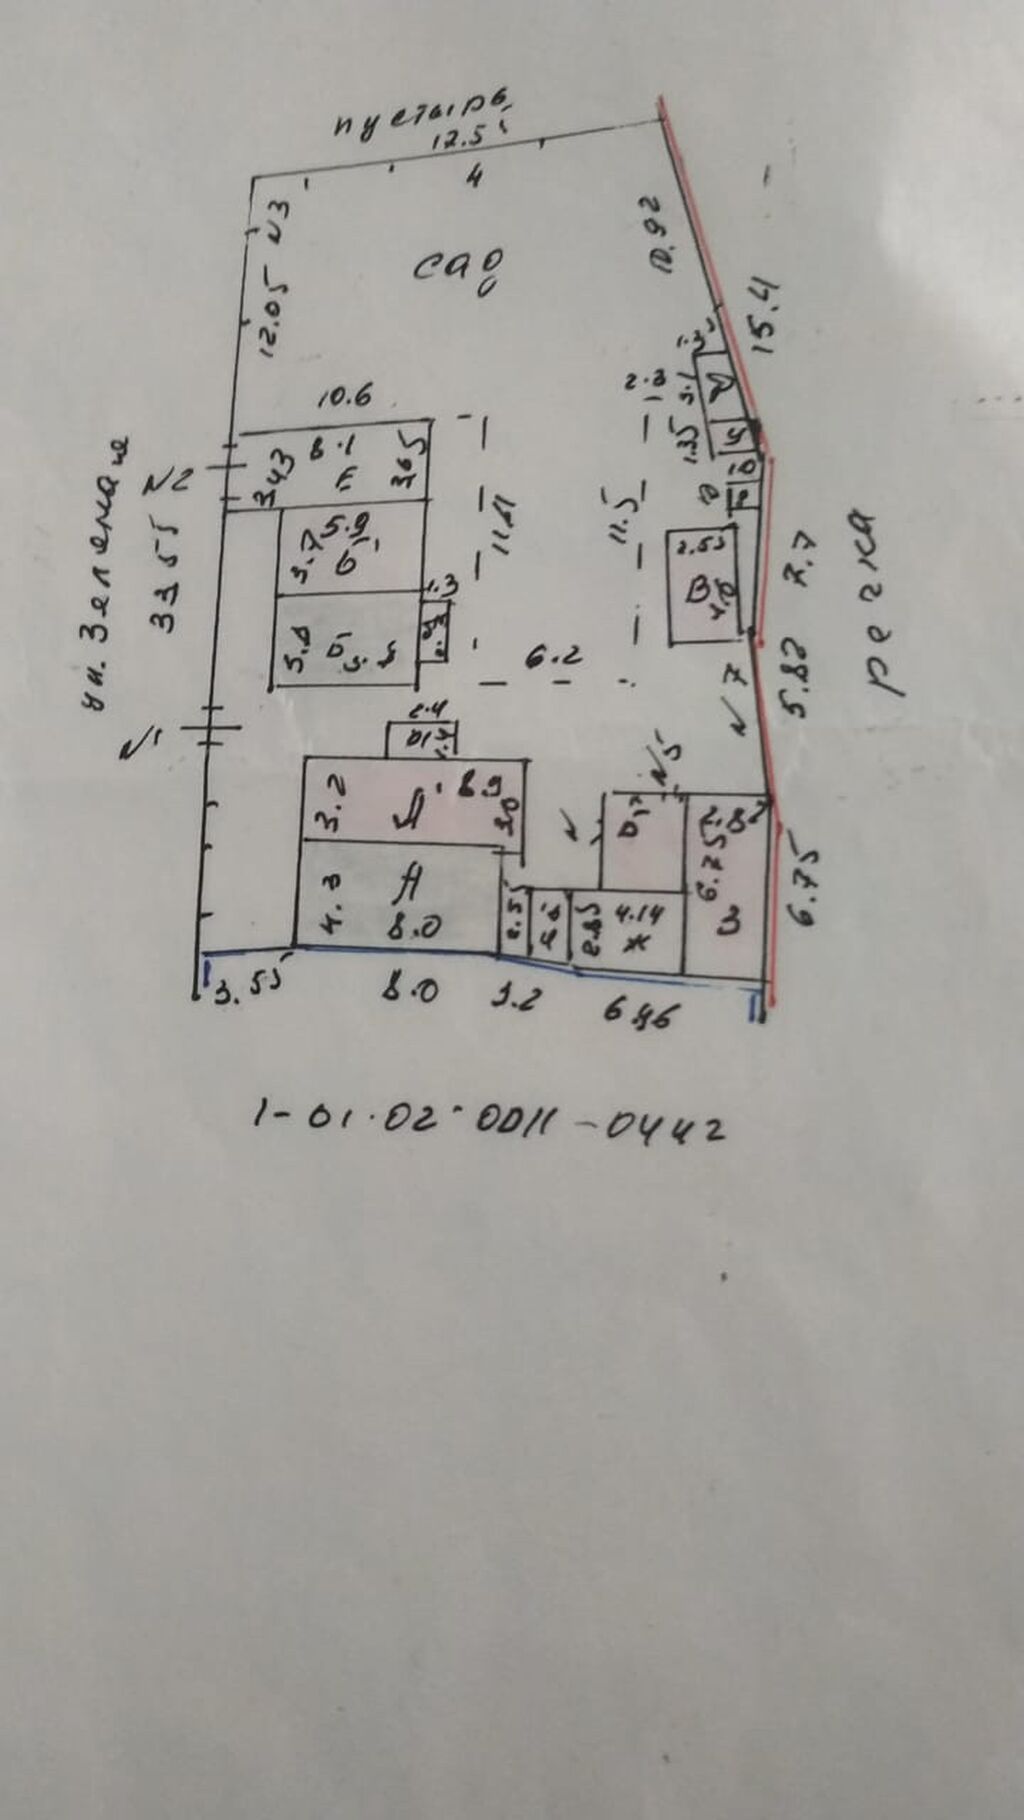 пустырь
12.5
4
N3
12.05
сад
10.92
15.4
10.6
8.1
3.43
Е
3.65
N2
33.55
ул.
2.3
3.1
1.35
11.5
3.7
5.9
2.53
В
4.0
7.7
речка
1.3
5.8
6.2
5.82
N7
N1
2.4
3.2
8.9
N5
4.3
А
8.0
2.55
2.85
4.14
6.75
З
6.75
3.55
8.0
3.2
6.46
1-01.02.0011-0442